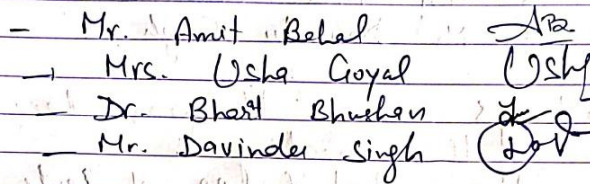 - Mr. Amit Behal
- Mrs. Usha Goyal Ush
- Dr. Bharat Bhushan
- Mr. Davinder Singh